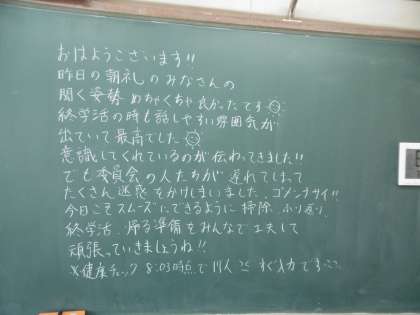 おはようございます!!
昨日の朝礼のみなさんの
聞く姿勢 めちゃくちゃ良かったです
終学活の時も話しやすい雰囲気が
出ていて最高でした
意識してくれているのが伝わってきました!!
でも委員会の人たちが遅れてしまって
たくさん迷惑をかけしまいました、ゴメンナサイ!!
今日こそスムーズにできるように 掃除、ふり返り、
終学活、帰る準備をみんなで工夫して
頑張っていきましょうね!!
※健康チェック 8:03時点で 人 すぐ入力です